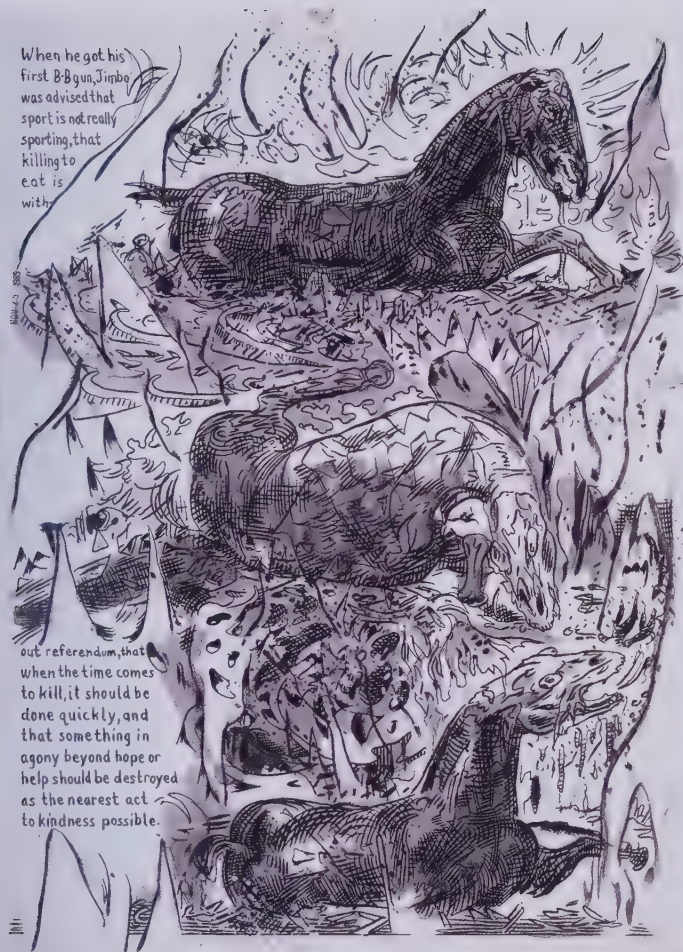 When he got his
first B-B gun, Jimbo
was advised that
sport is not really
sporting, that
killing to
eat is
with-
out referendum, that
when the time comes
to kill, it should be
done quickly, and
that something in
agony beyond hope or
help should be destroyed
as the nearest act
to kindness possible.